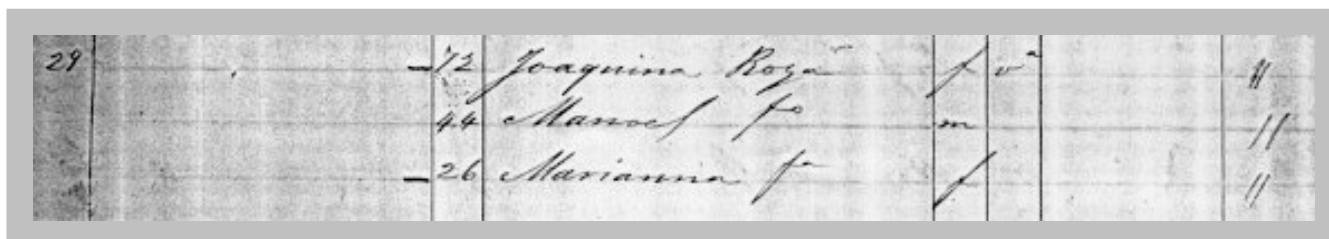 29 72 Joaquina Roza f vª "
44 Manoel fº m "
26 Marianna fª f "